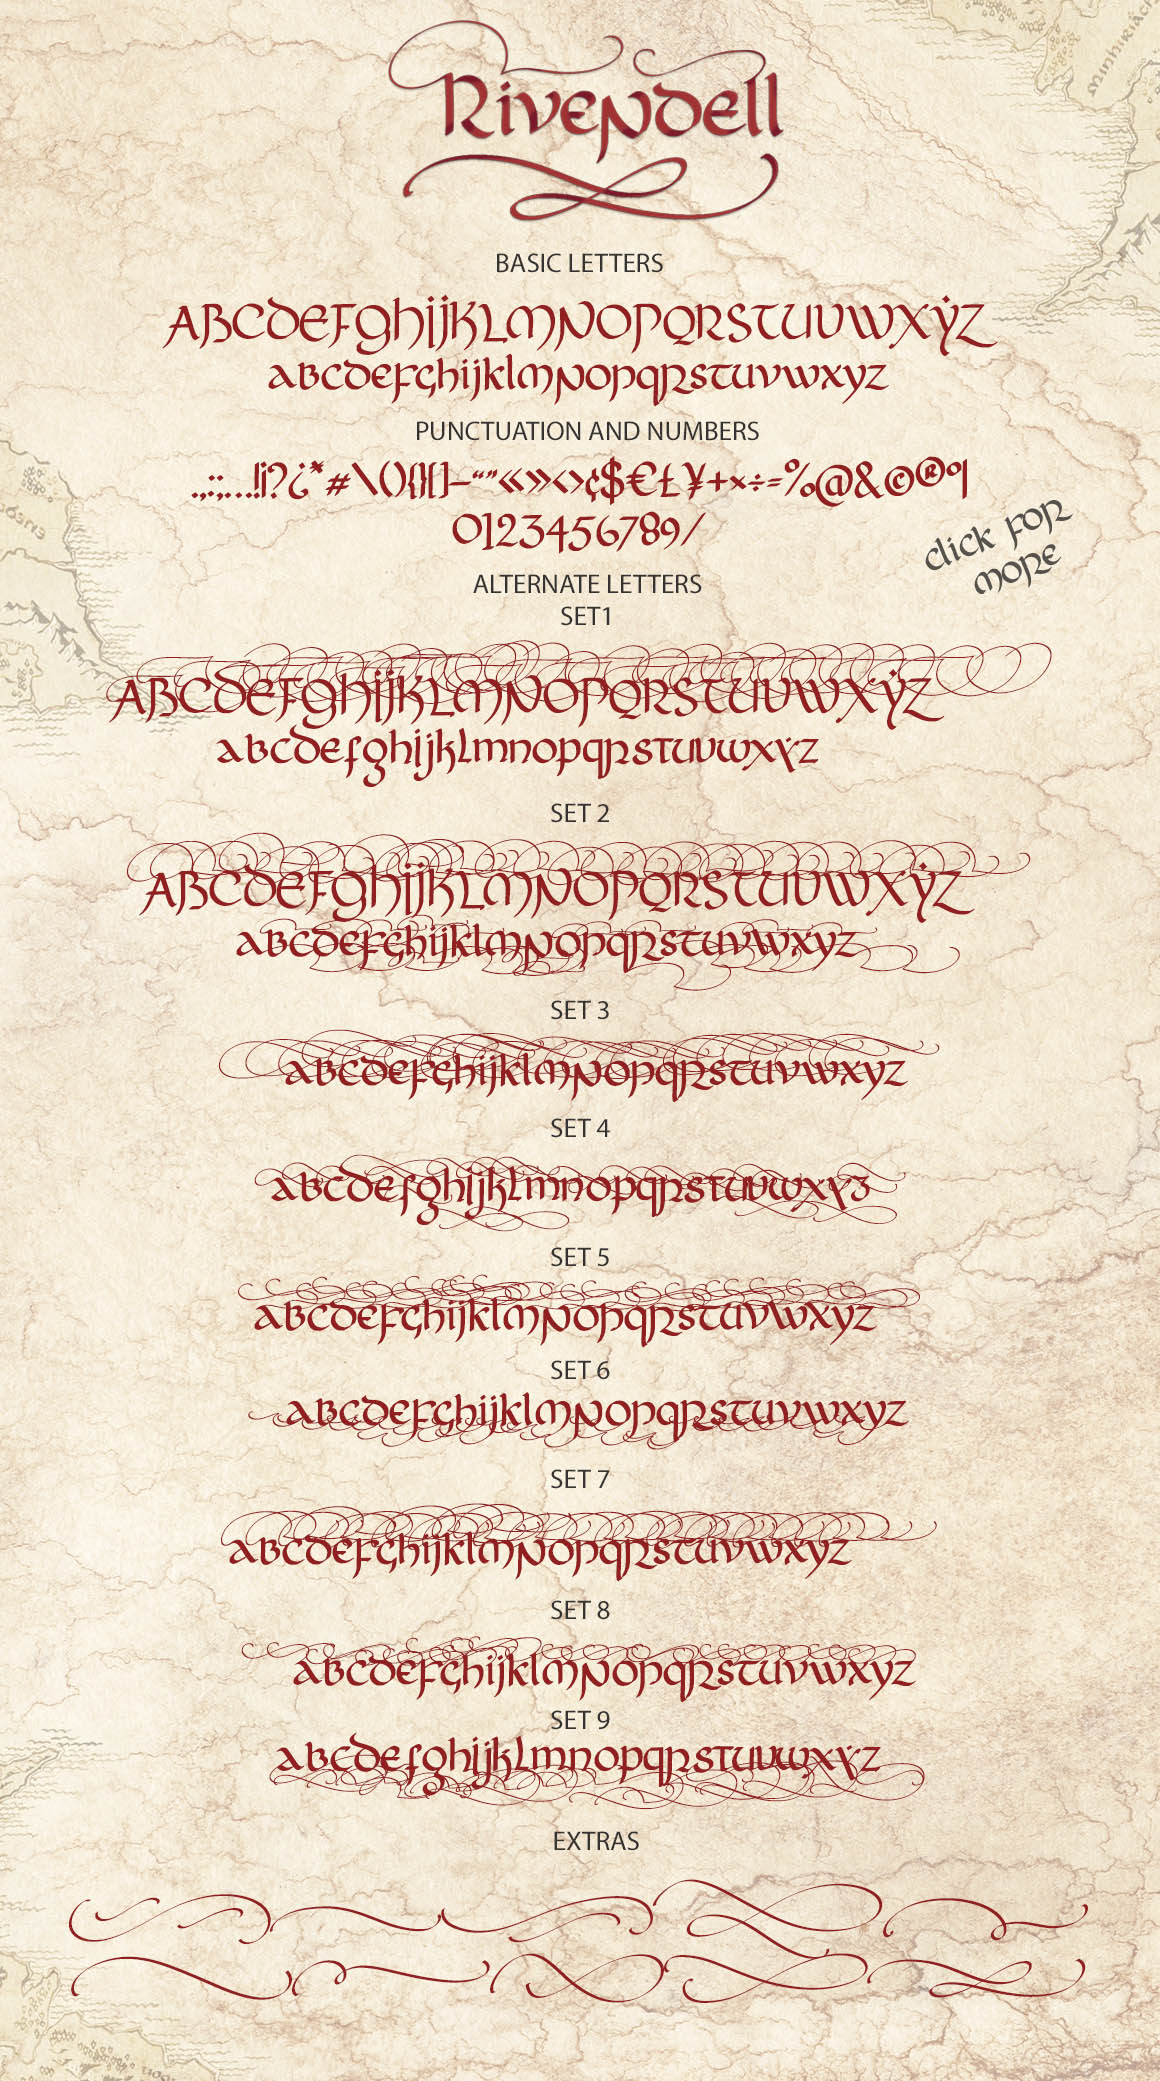 Rivendell
BASIC LETTERS
ABCDEFGHIJKLMNOPQRSTUVWXYZ
abcdefghijklmnopqrstuvwxyz
PUNCTUATION AND NUMBERS
.,:;...!¡?¿"*#\(){}[]–“”«»<>¢$€£¥+×÷=%@&©®º|
0123456789/
click for
more
ALTERNATE LETTERS
SET1
ABCDEFGHIJKLMNOPQRSTUVWXYZ
abcdefghijklmnopqrstuvwxyz
SET 2
ABCDEFGHIJKLMNOPQRSTUVWXYZ
abcdefghijklmnopqrstuvwxyz
SET 3
abcdefghijklmnopqrstuvwxyz
SET 4
abcdefghijklmnopqrstuvwxyz
SET 5
abcdefghijklmnopqrstuvwxyz
SET 6
abcdefghijklmnopqrstuvwxyz
SET 7
abcdefghijklmnopqrstuvwxyz
SET 8
abcdefghijklmnopqrstuvwxyz
SET 9
abcdefghijklmnopqrstuvwxyz
EXTRAS